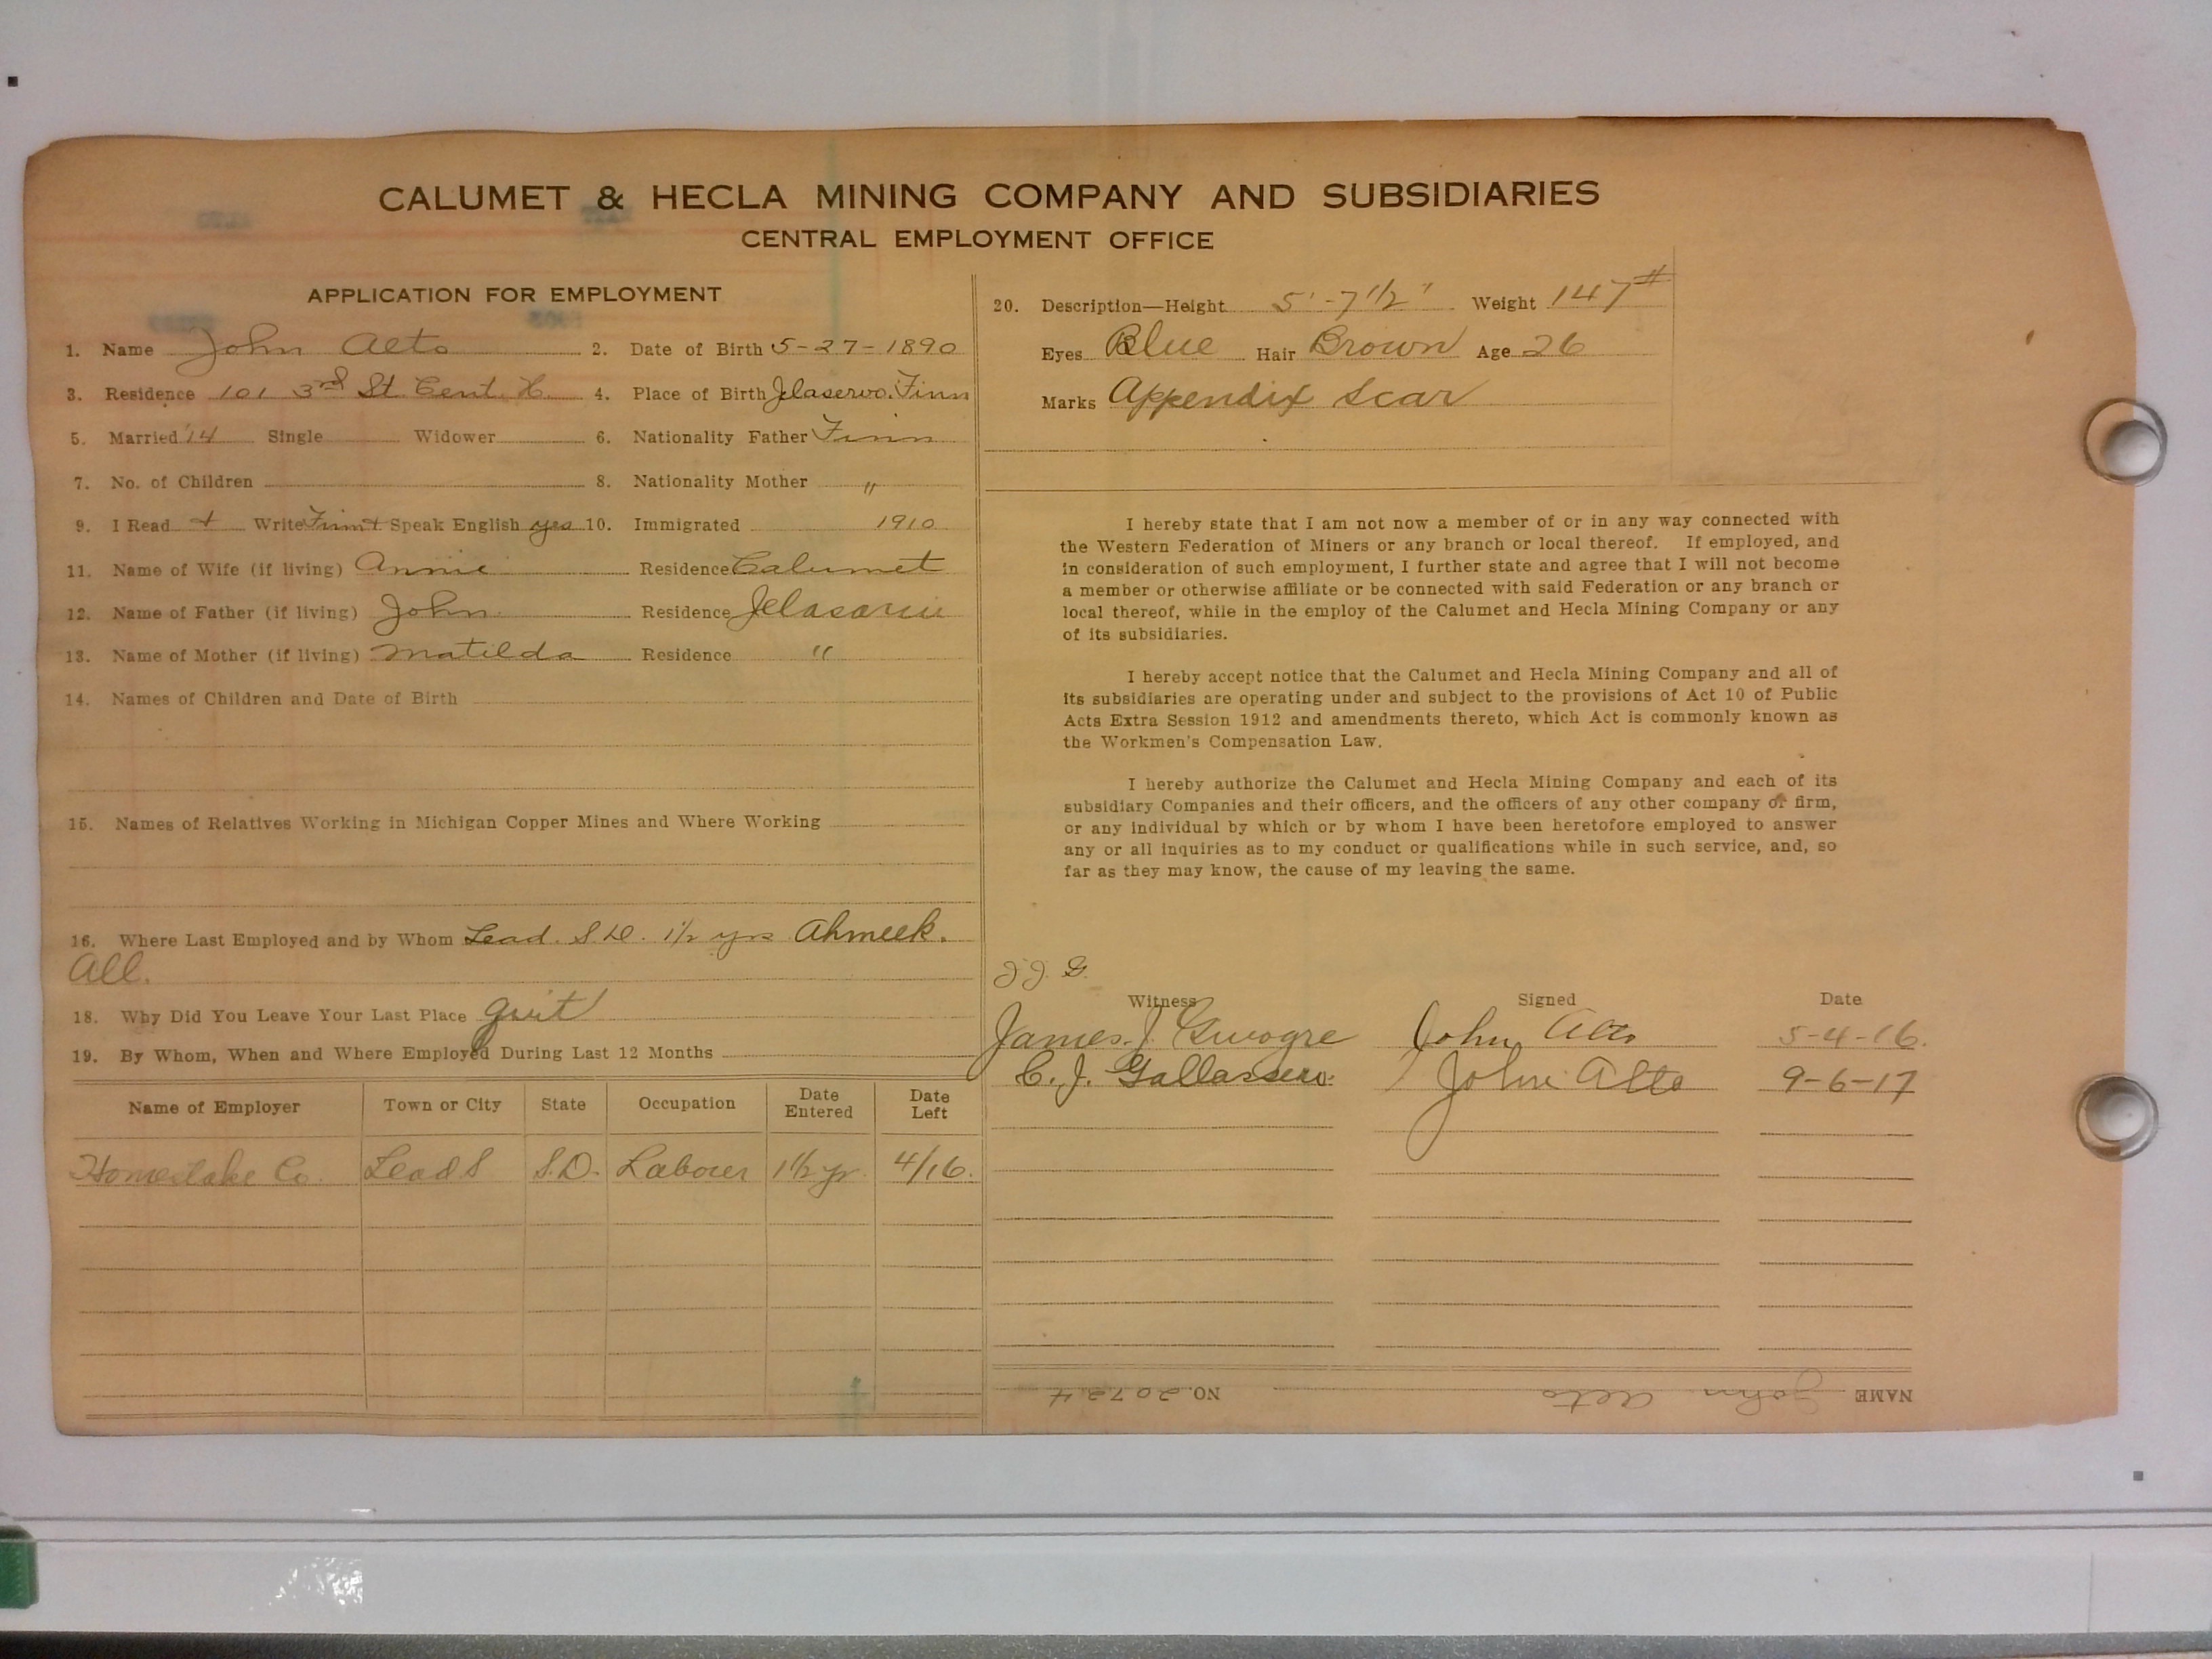 CALUMET & HECLA MINING COMPANY AND SUBSIDIARIES
CENTRAL EMPLOYMENT OFFICE
APPLICATION FOR EMPLOYMENT
1. Name John Alto 2. Date of Birth 5-27-1890
3. Residence 101 3rd St. Cent. H. 4. Place of Birth Finn
5. Married '14 Single Widower 6. Nationality Father Finn
7. No. of Children 8. Nationality Mother "
9. I Read + Write Finn + Speak English yes 10. Immigrated 1910
11. Name of Wife (if living) Annie Residence Calumet
12. Name of Father (if living) John Residence
13. Name of Mother (if living) Matilda Residence "
14. Names of Children and Date of Birth
15. Names of Relatives Working in Michigan Copper Mines and Where Working
16. Where Last Employed and by Whom Lead. S.D. 1 1/2 yrs Ahmeek.
All.
18. Why Did You Leave Your Last Place quit
19. By Whom, When and Where Employed During Last 12 Months
Name of Employer Town or City State Occupation Date Entered Date Left
Homestake Co. Lead S S.D. Labour 1 1/2 yr. 4/16.
20. Description—Height 5'-7 1/2" Weight 147#
Eyes Blue Hair Brown Age 26
Marks Appendix Scar
I hereby state that I am not now a member of or in any way connected with
the Western Federation of Miners or any branch or local thereof. If employed, and
in consideration of such employment, I further state and agree that I will not become
a member or otherwise affiliate or be connected with said Federation or any branch or
local thereof, while in the employ of the Calumet and Hecla Mining Company or any
of its subsidiaries.
I hereby accept notice that the Calumet and Hecla Mining Company and all of
its subsidiaries are operating under and subject to the provisions of Act 10 of Public
Acts Extra Session 1912 and amendments thereto, which Act is commonly known as
the Workmen's Compensation Law.
I hereby authorize the Calumet and Hecla Mining Company and each of its
subsidiary Companies and their officers, and the officers of any other company or firm,
or any individual by which or by whom I have been heretofore employed to answer
any or all inquiries as to my conduct or qualifications while in such service, and, so
far as they may know, the cause of my leaving the same.
J.J. G.
Witness Signed Date
James. J. John Alto 5-4-16.
C. J. John Alto 9-6-17
NAME John Alto NO. 20724